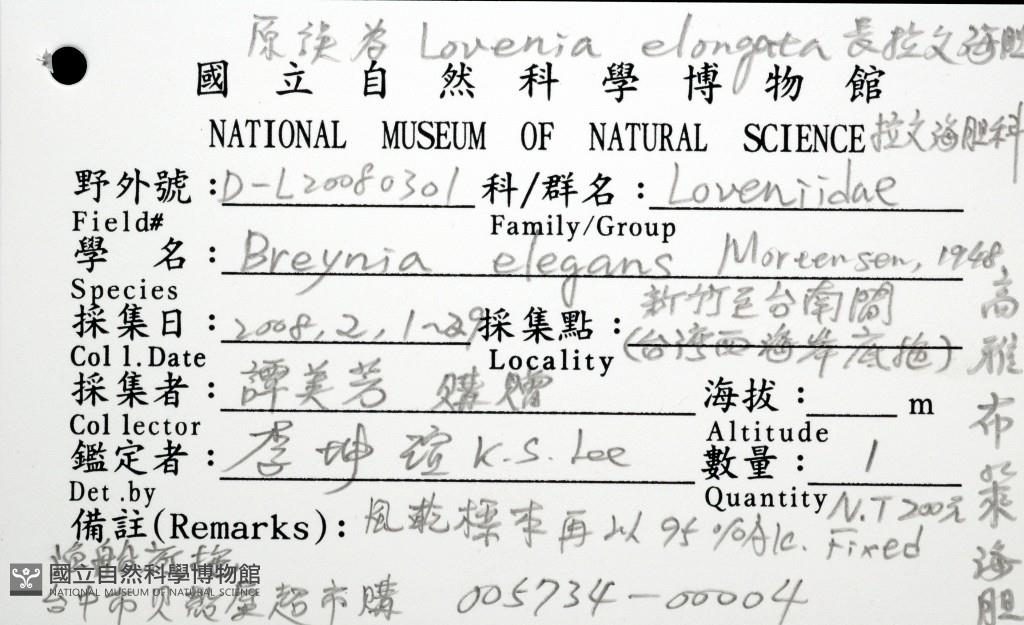 原誤為 Lovenia elongata 長拉文海胆
國立自然科學博物館
NATIONAL MUSEUM OF NATURAL SCIENCE 拉文海胆科
野外號：D-L20080301 科/群名：Loveniidae
Field# Family/Group
學 名：Breynia elegans Mortensen, 1948
Species
高雅布萊海胆
新竹至台南間
採集日：2008, 2, 1~29 採集點：(台湾西海岸底拖)
Coll.Date Locality
採集者：譚美芳 購贈 海拔： m
Collector Altitude
鑑定者：李坤瑄 K.S. Lee 數量：1
Det.by Quantity N.T 200元
備註(Remarks)：風乾標本再以 95%Alc. Fixed
國立自然科學博物館
NATIONAL MUSEUM OF NATURAL SCIENCE
台中市贝殼屋超市購 005734-00004